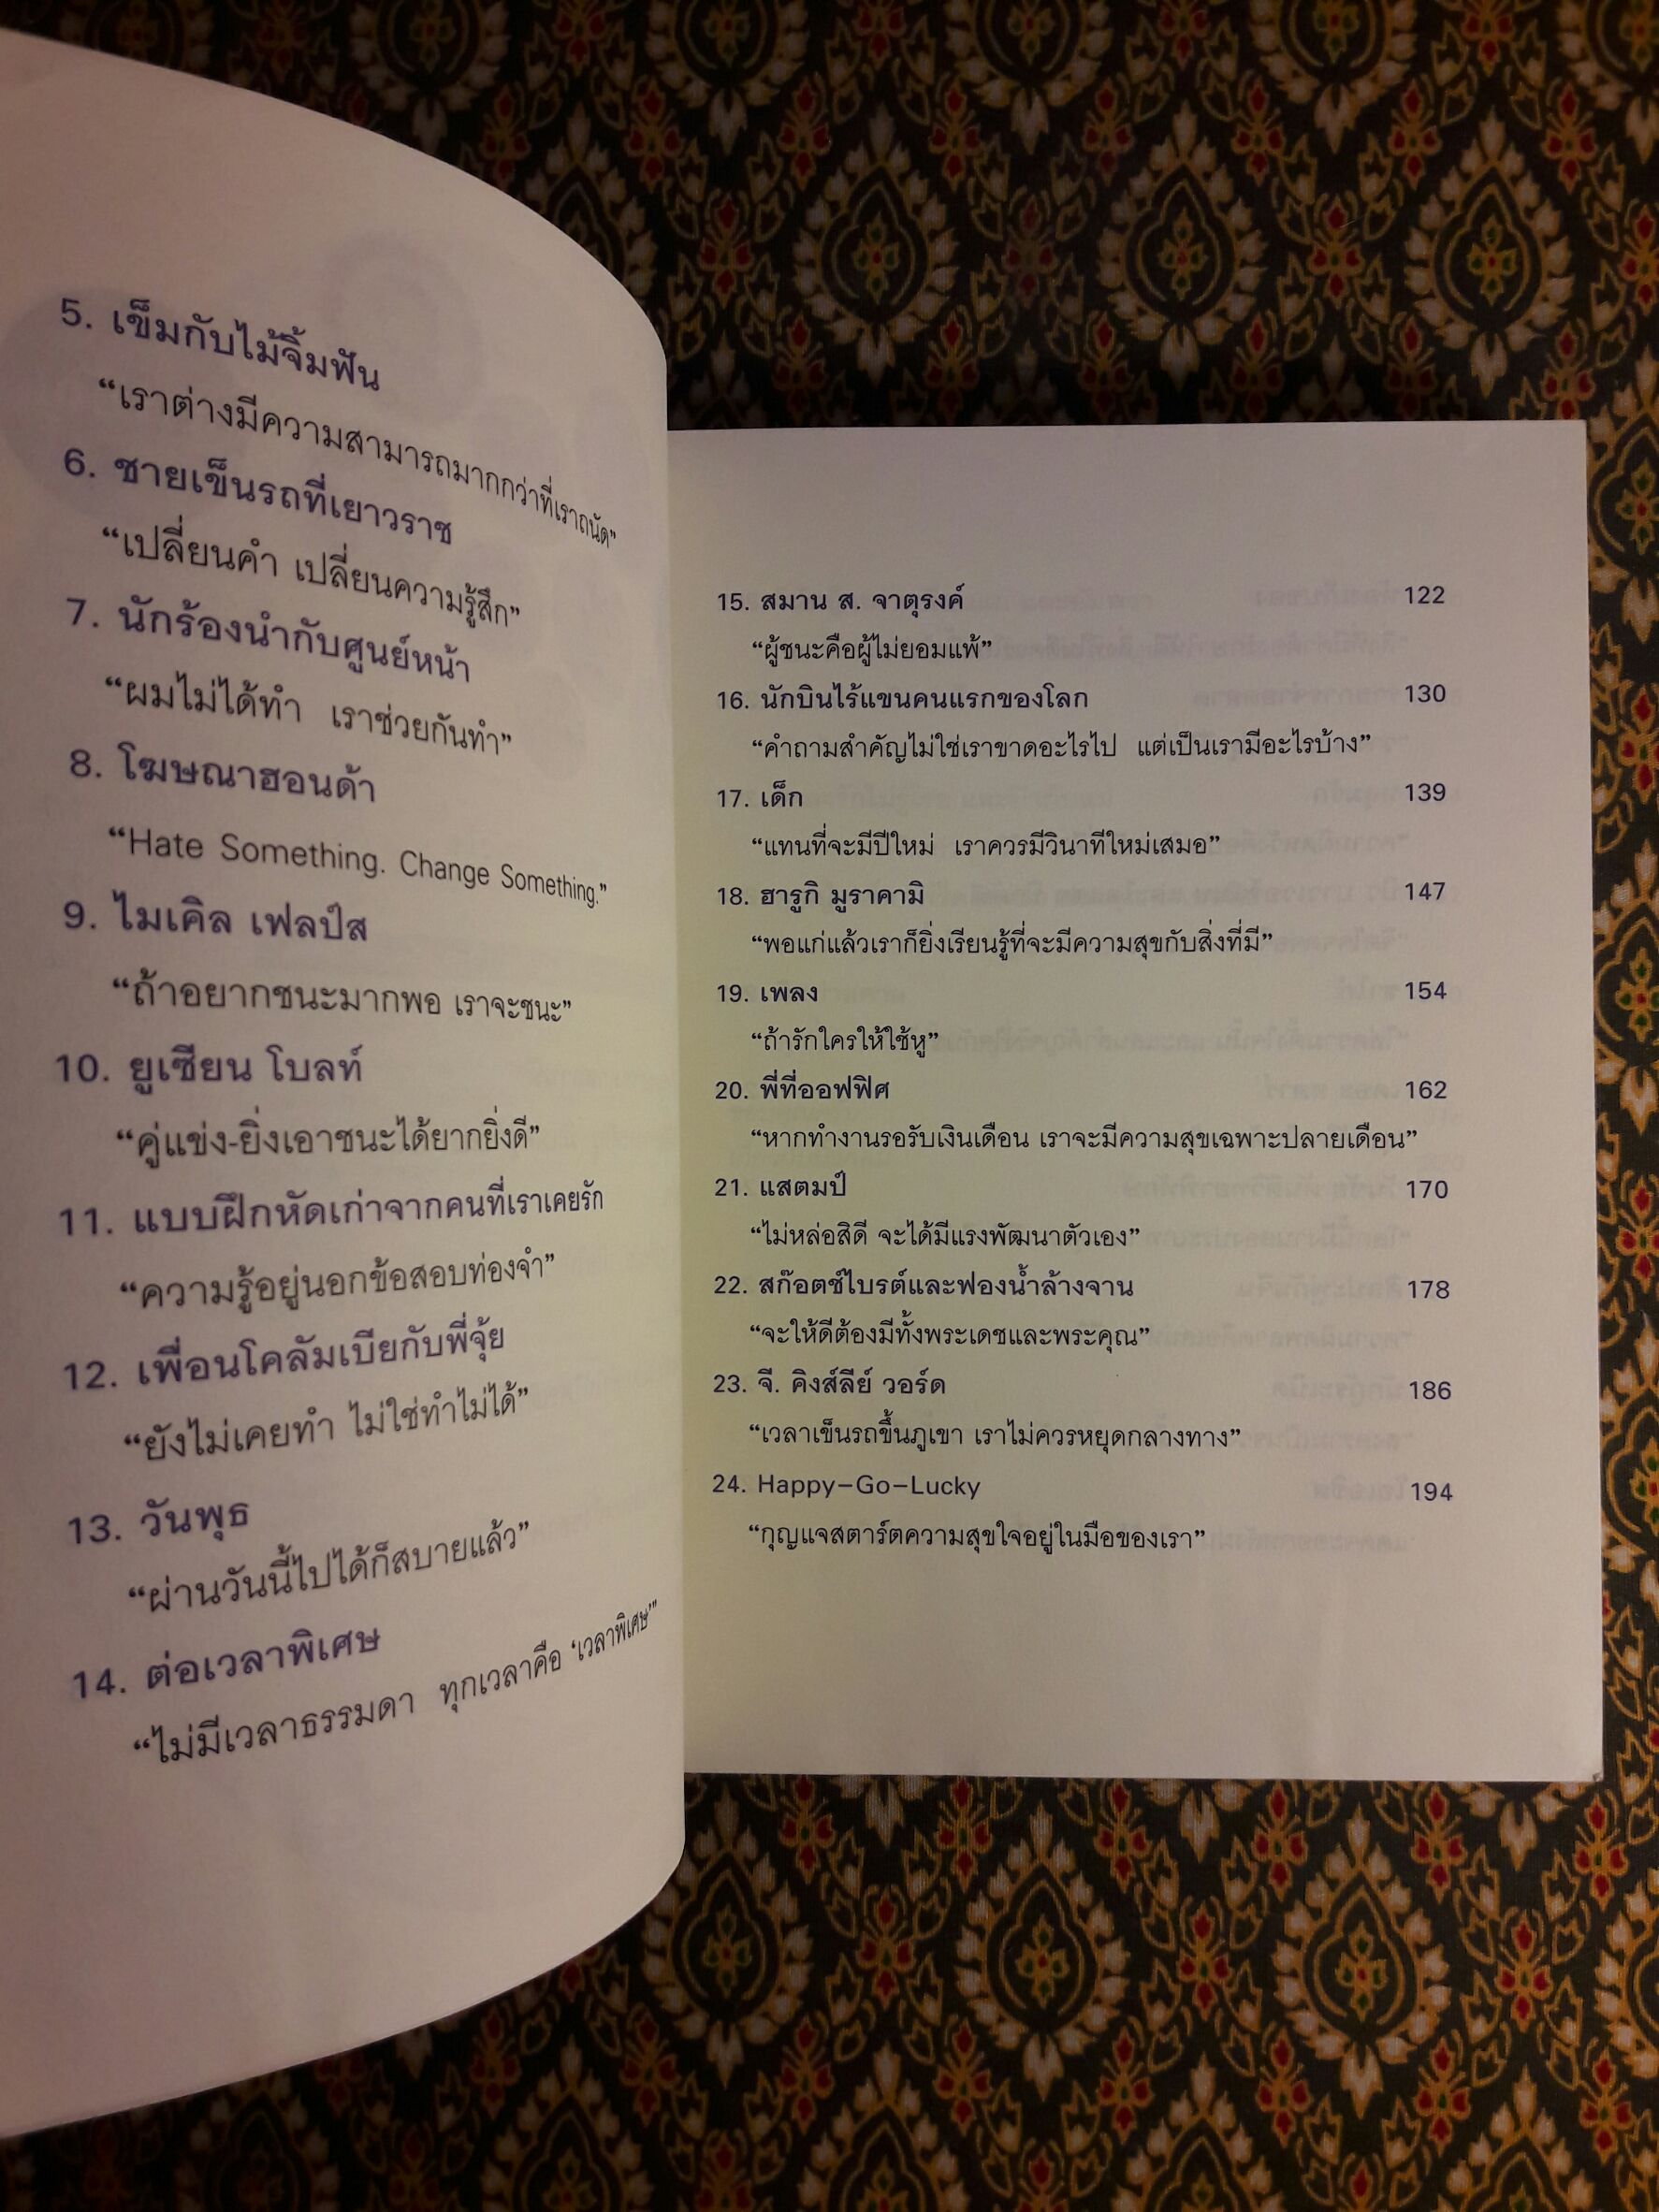 5. เข็มกับไม้จิ้มฟัน
“เราต่างมีความสามารถมากกว่าที่เราถนัด”
6. ชายเข็นรถที่เยาวราช
“เปลี่ยนคำ เปลี่ยนความรู้สึก”
7. นักร้องนำกับศูนย์หน้า
“ผมไม่ได้ทำ เราช่วยกันทำ”
8. โฆษณาฮอนด้า
“Hate Something. Change Something.”
9. ไมเคิล เฟลป์ส
“ถ้าอยากชนะมากพอ เราจะชนะ”
10. ยูเซียน โบลท์
“คู่แข่ง-ยิ่งเอาชนะได้ยากยิ่งดี”
11. แบบฝึกหัดเก่าจากคนที่เราเคยรัก
“ความรู้อยู่นอกข้อสอบท่องจำ”
12. เพื่อนโคลัมเบียกับพี่จุ้ย
“ยังไม่เคยทำ ไม่ใช่ทำไม่ได้”
13. วันพุธ
“ผ่านวันนี้ไปได้ก็สบายแล้ว”
14. ต่อเวลาพิเศษ
“ไม่มีเวลาธรรมดา ทุกเวลาคือ ‘เวลาพิเศษ’”
15. สมาน ส. จาตุรงค์ 122
“ผู้ชนะคือผู้ไม่ยอมแพ้”
16. นักบินไร้แขนคนแรกของโลก 130
“คำถามสำคัญไม่ใช่เราขาดอะไรไป แต่เป็นเรามีอะไรบ้าง”
17. เด็ก 139
“แทนที่จะมีปีใหม่ เราควรมีวินาทีใหม่เสมอ”
18. ฮารูกิ มูราคามิ 147
“พอแก่แล้วเราก็ยิ่งเรียนรู้ที่จะมีความสุขกับสิ่งที่มี”
19. เพลง 154
“ถ้ารักใครให้ใช้หู”
20. พี่ที่ออฟฟิศ 162
“หากทำงานรอรับเงินเดือน เราจะมีความสุขเฉพาะปลายเดือน”
21. แสตมป์ 170
“ไม่หล่อสิดี จะได้มีแรงพัฒนาตัวเอง”
22. สก๊อตช์ไบรต์และฟองน้ำล้างจาน 178
“จะให้ดีต้องมีทั้งพระเดชและพระคุณ”
23. จี. คิงส์ลีย์ วอร์ด 186
“เวลาเข็นรถขึ้นภูเขา เราไม่ควรหยุดกลางทาง”
24. Happy–Go–Lucky 194
“กุญแจสตาร์ตความสุขใจอยู่ในมือของเรา”